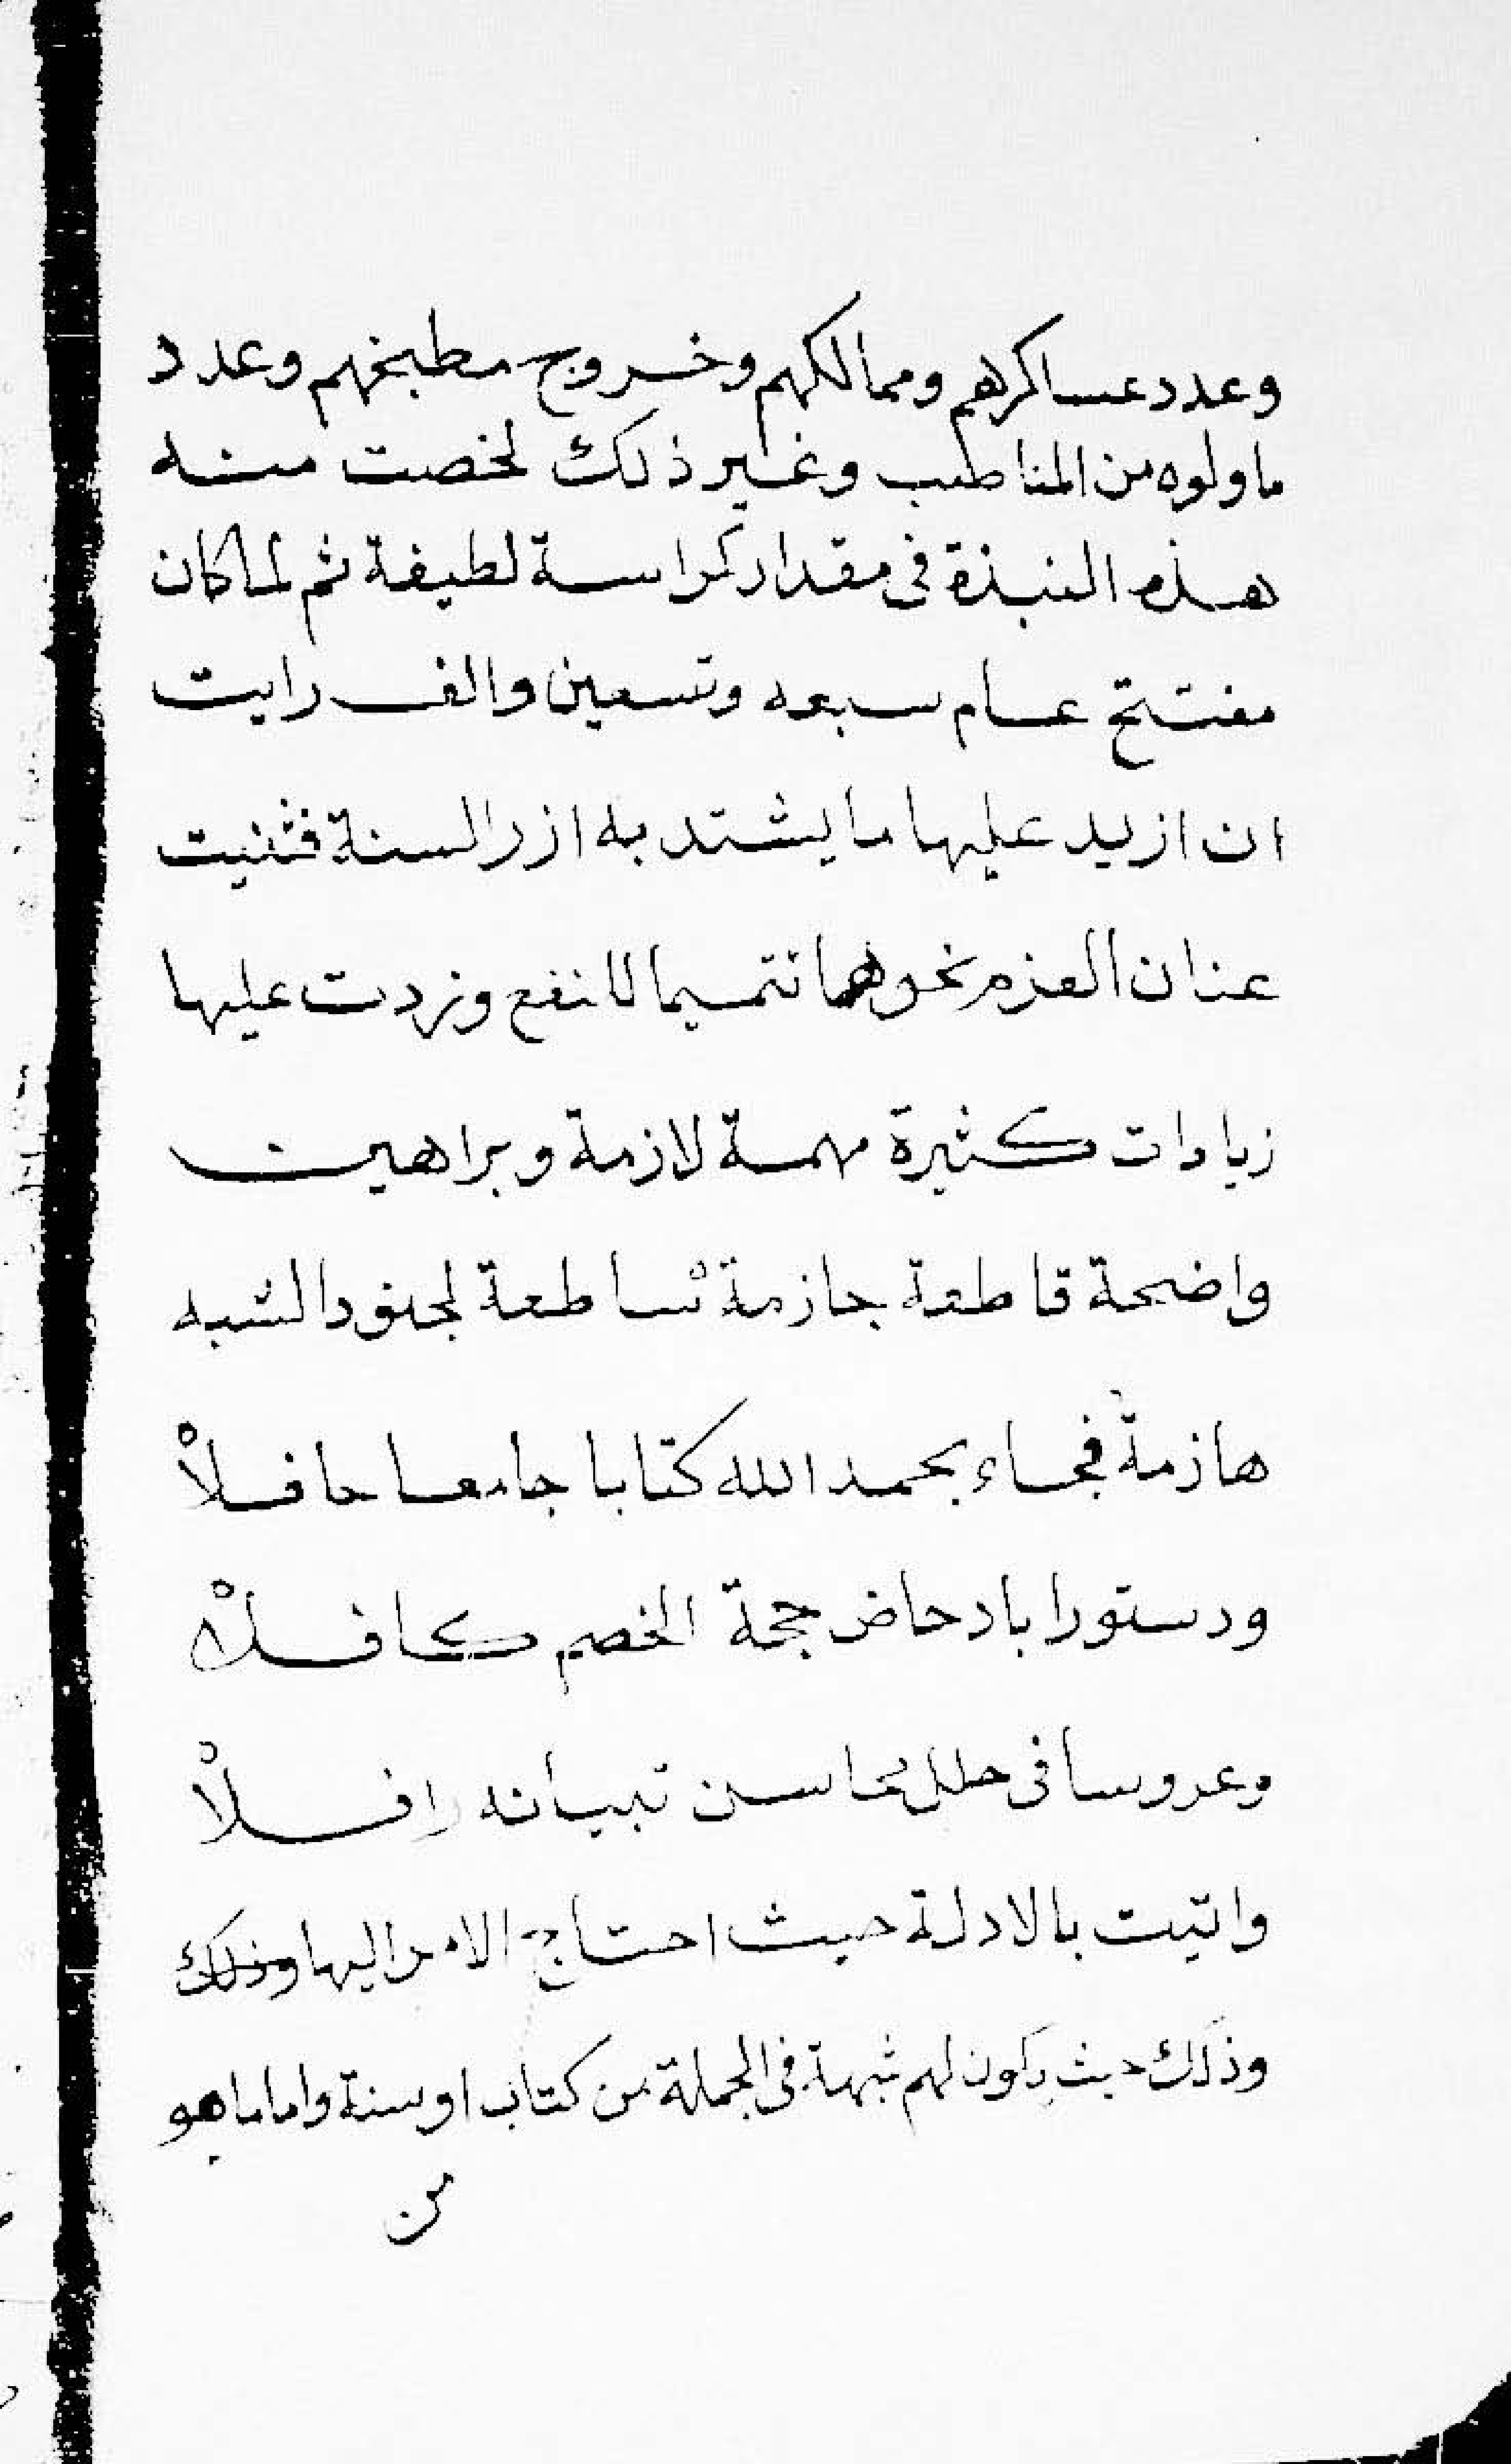 وعدد عساكرهم وممالكهم وخروج مطبخهم وعدد
ما ولوه من المناطيب وغير ذلك لخصت منه
هذه النبذة فى مقدار كراسة لطيفة ثم لما كان
مفتتح عام سبعه وتسعين والف رايت
ان ازيد عليها ما يشتد به ازر السنة فثنيت
عنان العزم نحوها تتميما للنفع وزدت عليها
زيادات كثيرة مهمة لازمة وبراهين
واضحة قاطعة جازمة ساطعة لجنود الشبه
هازمة فجاء بحمد الله كتابا جامعا حافلاْ
ودستورا بادحاض حجة الخصم كافلاْ
وعروسا فى حلل محاسن تبيانه رافلاْ
واتيت بالادلة حيث احتاج الامر اليها وذلك
وذلك حيث يكون لهم شبهة فى الجملة من كتاب او سنة واما ما هو
من